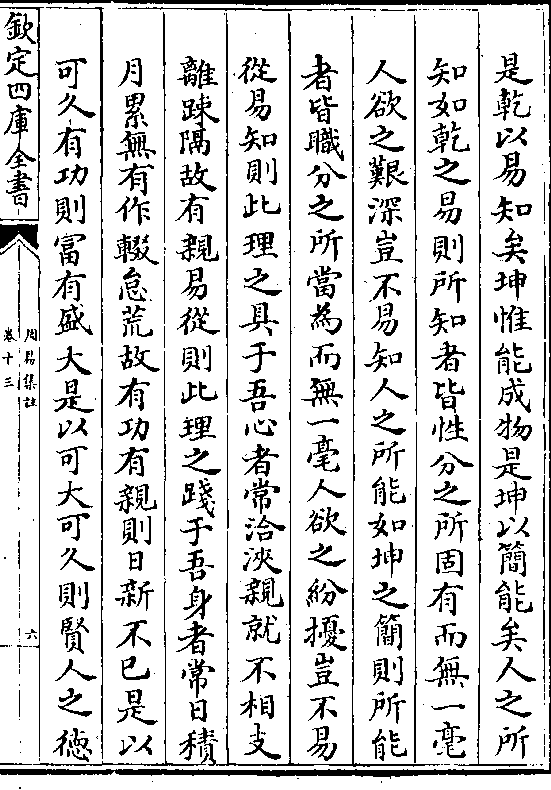 是乾以易知矣坤惟能成物是坤以簡能矣人之所
知如乾之易則所知者皆性分之所固有而無一毫
人欲之艱深豈不易知人之所能如坤之簡則所能
者皆職分之所當為而無一毫人欲之紛擾豈不易
從易知則此理之具于吾心者常洽浹親就不相支
離踈隔故有親易從則此理之踐于吾身者常日積
月累無有作輟怠荒故有功有親則日新不已是以
可久有功則富有盛大是以可大可久則賢人之德
欽定四庫全書
周易集註
卷十三
六